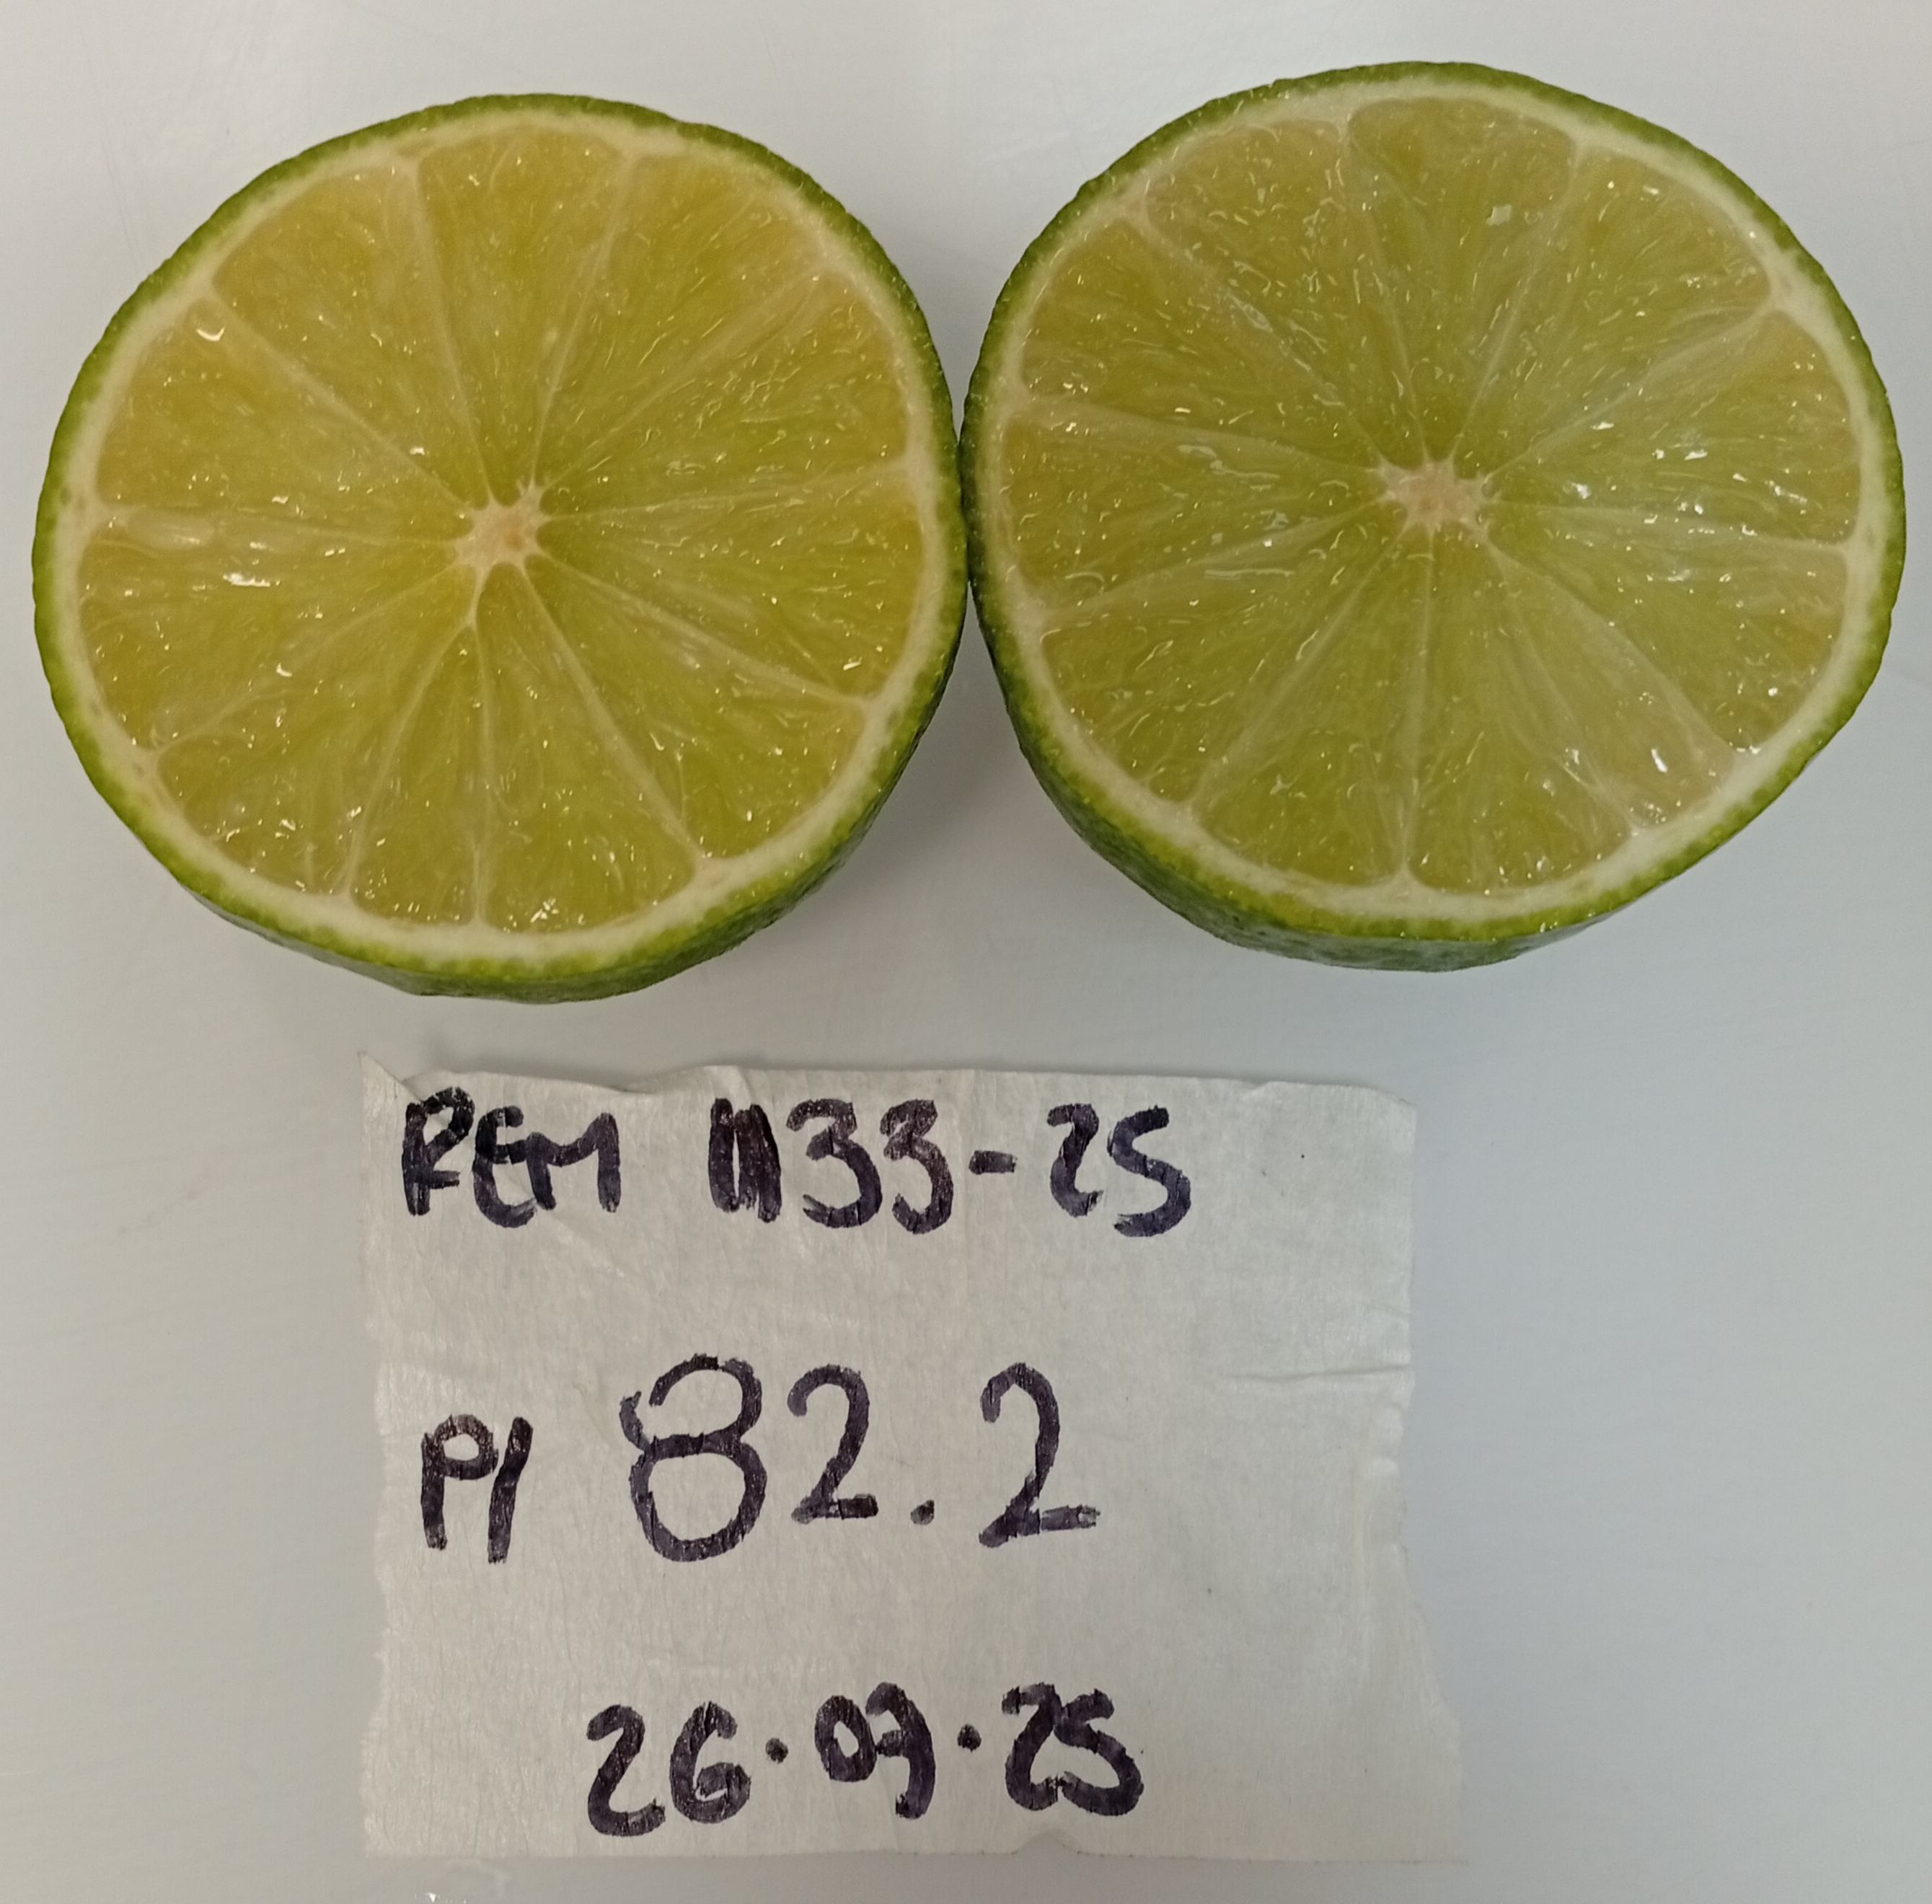 REM 1133-25
PI 82.2
26.07.25